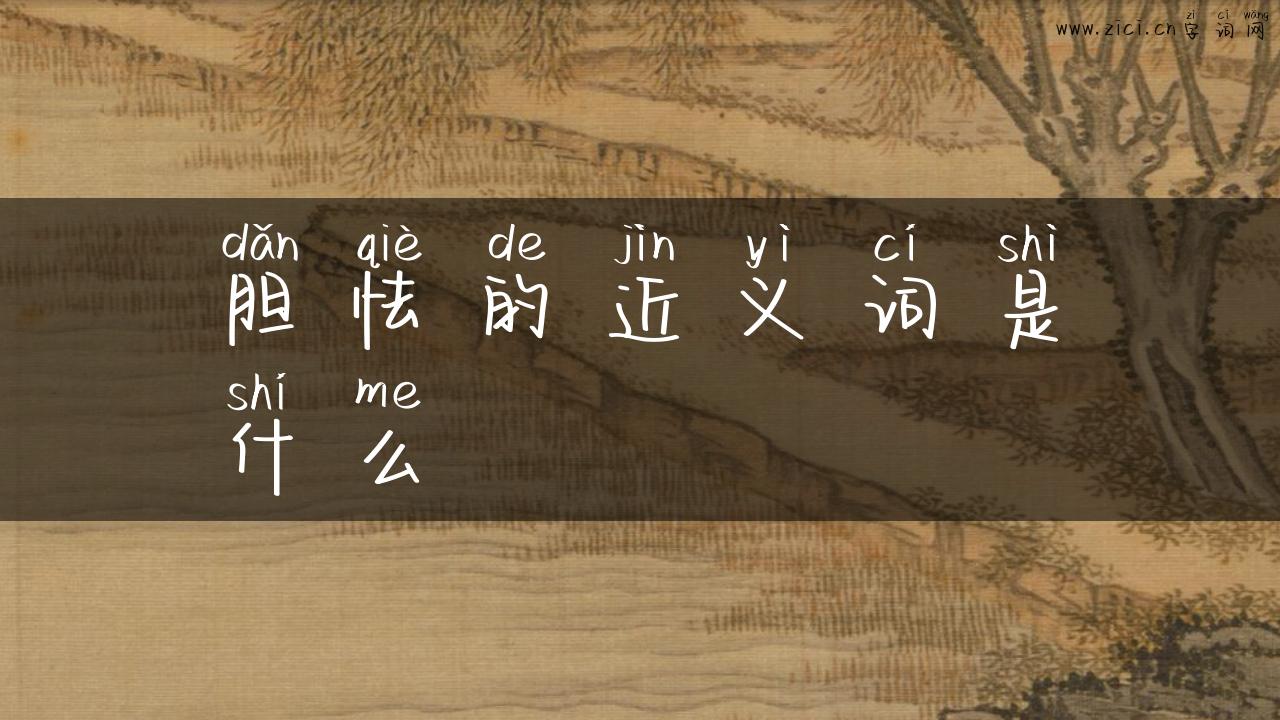 zì cí wǎng
www.zici.cn字词网
dǎn qiè de jìn yì cí shì
胆怯的近义词是
shí me
什么